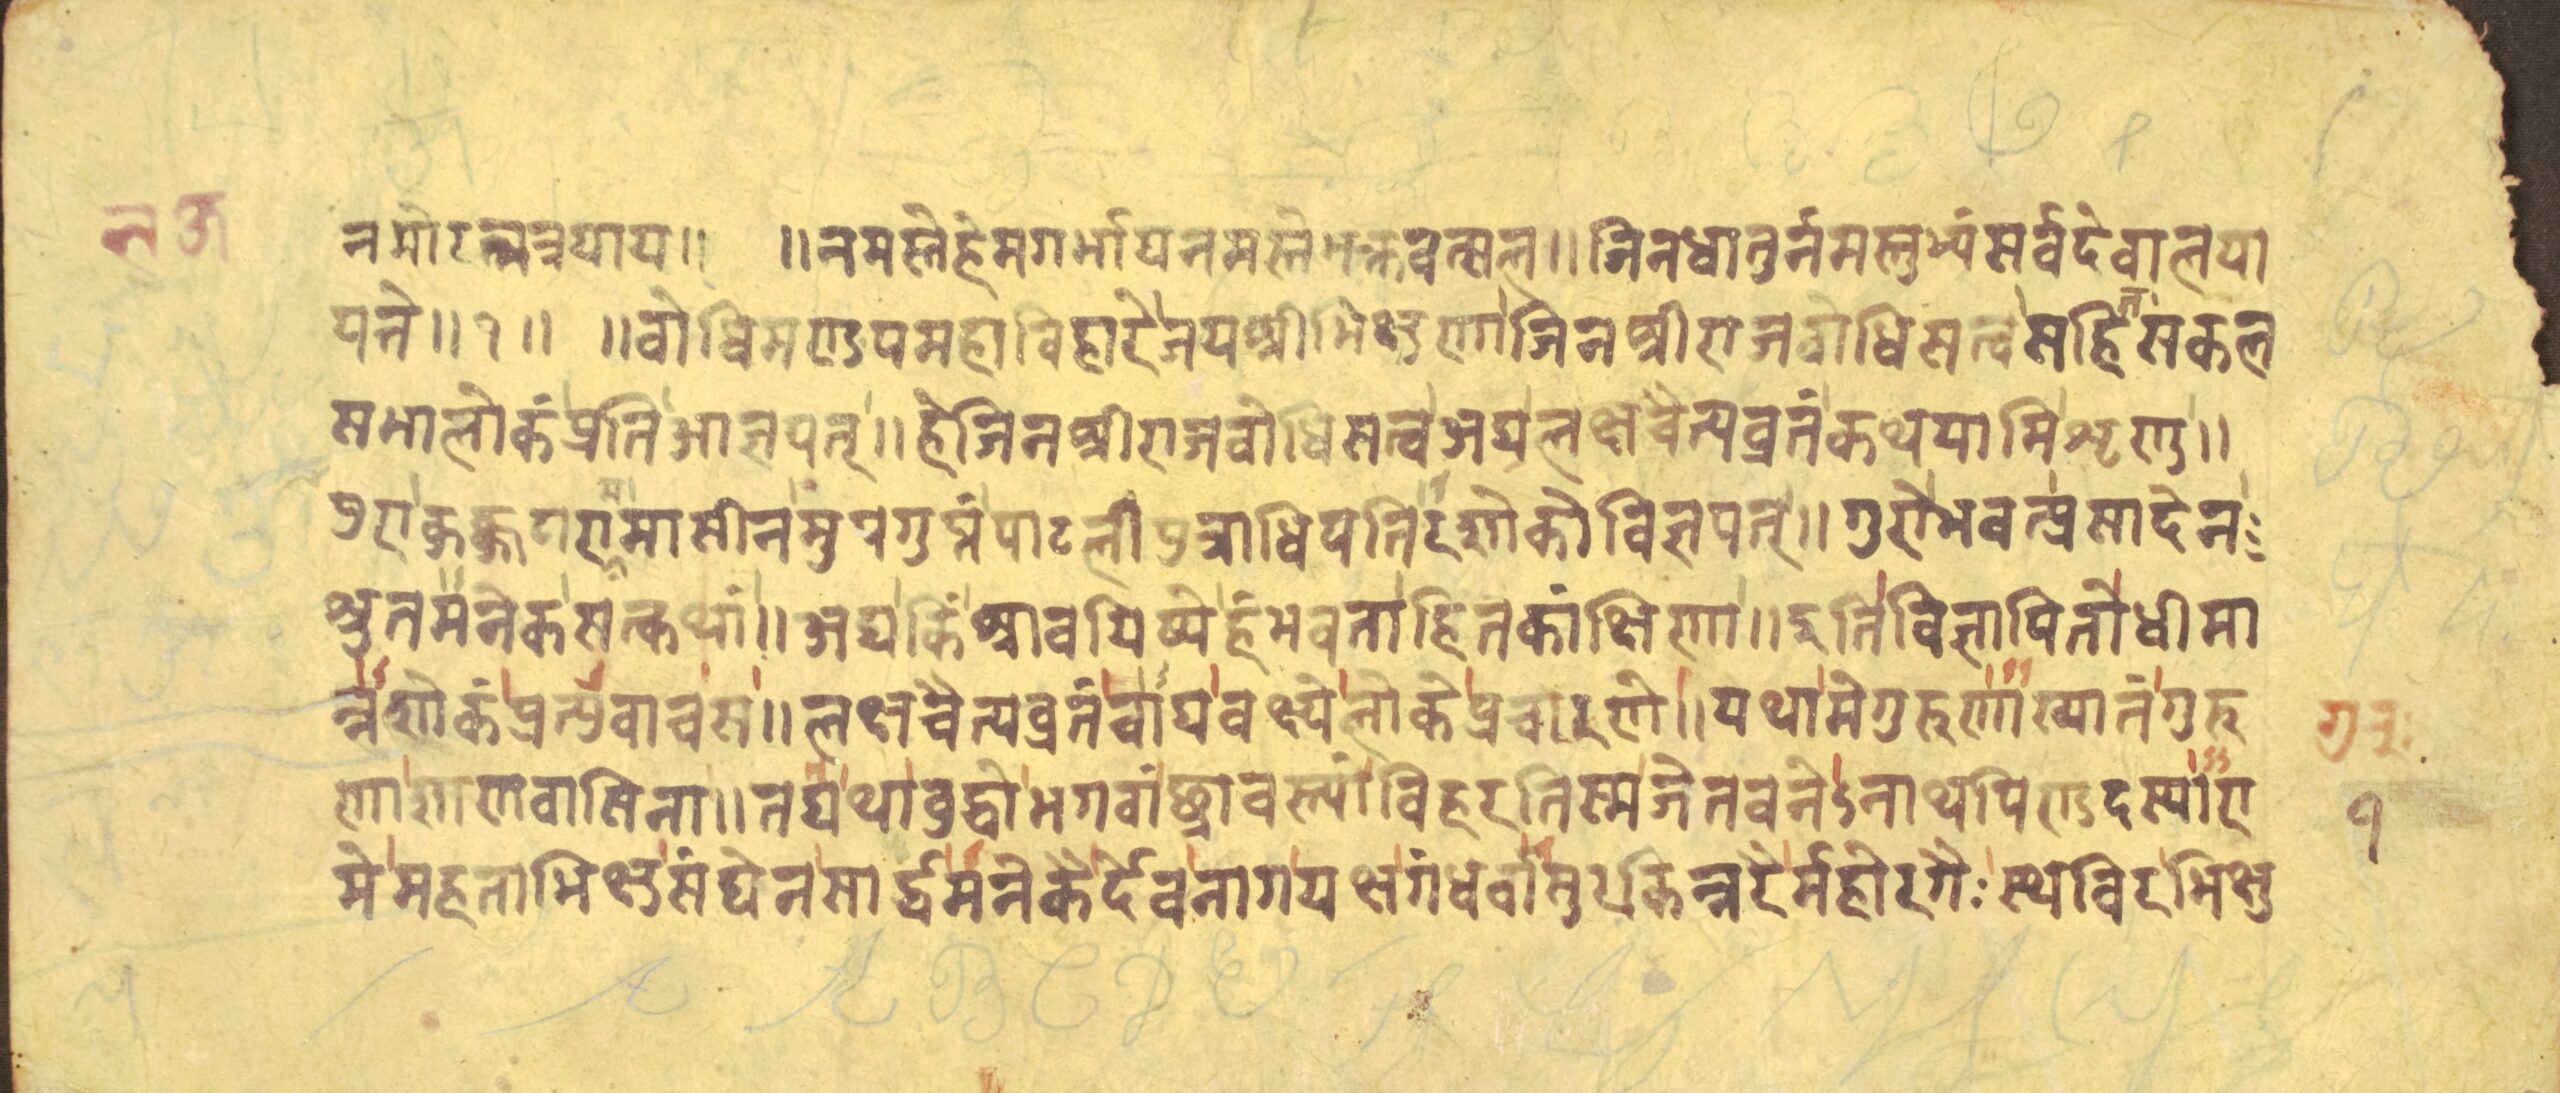 लअ
नमो रत्नत्रयाय॥ ॥नमस्ते हेमगर्भाय नमस्ते भक्तवत्सल॥ जिनधातुर्नमस्तुभ्यं सर्वदेवालया
यने॥१॥ ॥वोधिमण्डपमहाविहारे जयश्रीभिक्षुणा जिनश्रीराजवोधिसत्वसहितं सकल
सभालोकं प्रति आज्ञपत्॥ हे जिनश्रीराजवोधिसत्व अद्य लक्षचैत्यव्रतं कथयामि शृणु॥
पुरा कुक्कुटाराममासीनमुपगुप्तं पाटलीपुत्राधिपतिरशोको विज्ञपत्॥ गुरो भवत्प्रसादेनः
श्रुतमनेकसत्कथां॥ अद्य किं श्रावयिष्येहं भवता हितकांक्षिणा॥ इति विज्ञापितो धीमा
न्नशोकं प्रत्युवाच स॥ लक्षचैत्यव्रतं चाद्य वक्ष्ये लोके प्रचारणे॥ यथा मे गुरुणाख्यातं गुरु
णा शाणवासिना॥ तद्यथा वुद्धो भगवां छ्रावस्त्यां विहरति स्म जेतवनेऽनाथपिण्डदस्यारा
मे महता भिक्षुसंघेन सार्द्धमनेकैर्देवनागयक्षगंधर्वासुरकिन्नरैर्महोरगैः स्थविरभिक्षु
गुरुः
१
A A B C D E